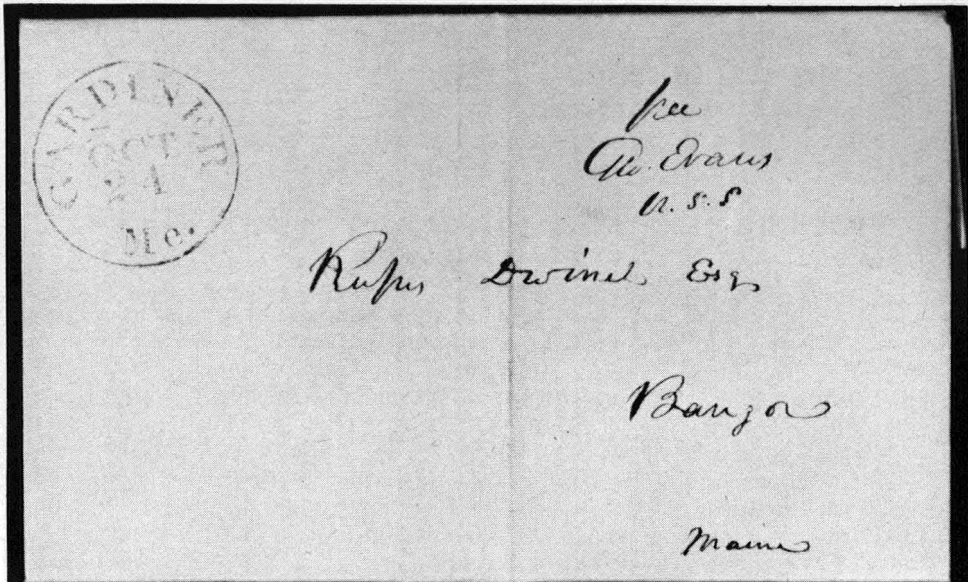 GARDINER
OCT
24
Me.
free
Geo. Evans
U. S. S
Rufus Dwinel Esq
Bangor
Maine